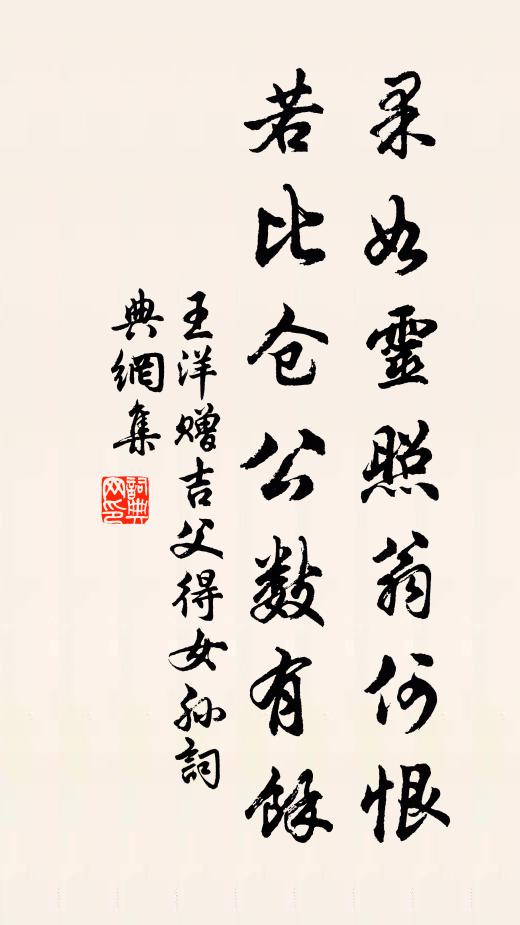 果如靈照翁何恨
若比仓公數有餘
王洋赠吉父得女孙詞
典網集
詞典网印